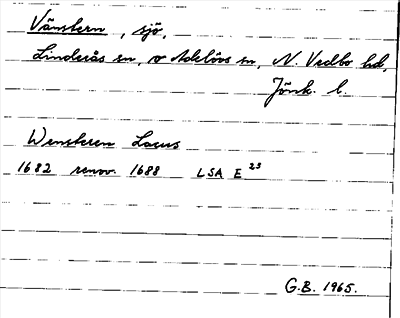 Vänstern, sjö,
Linderås sn, o Adelövs sn, N. Vedbo hd,
Jönk. l.
Wensteren Lacus
1682 renov. 1688 LSA E 23
G.B. 1965.